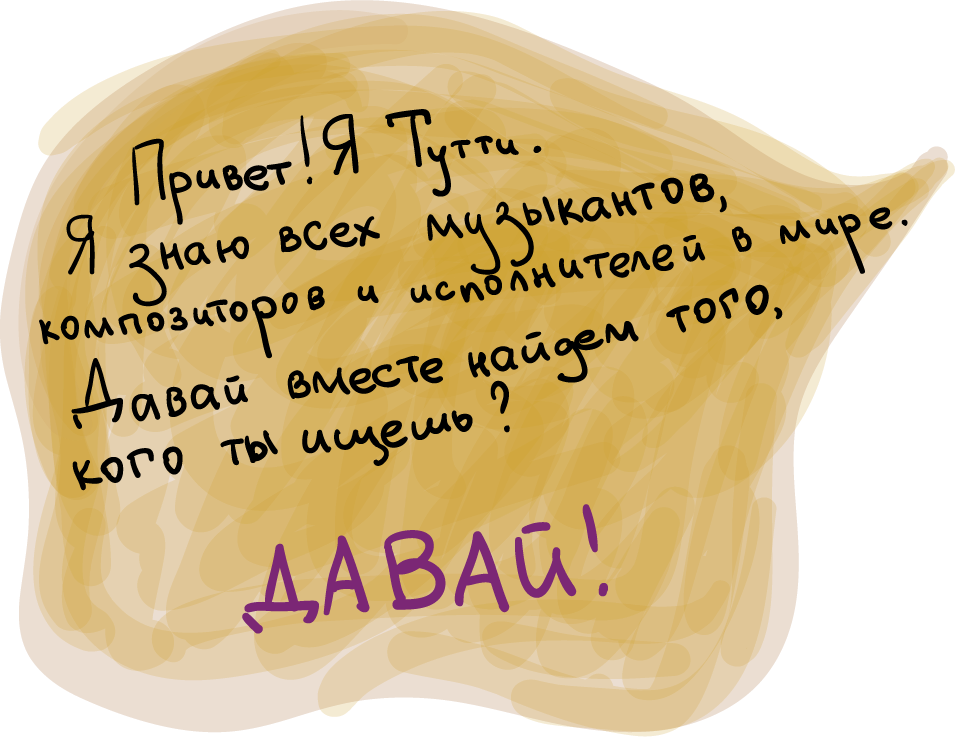 Привет! Я Тутти.
Я знаю всех музыкантов,
композиторов и исполнителей в мире.
Давай вместе найдем того,
кого ты ищешь?
ДАВАЙ!